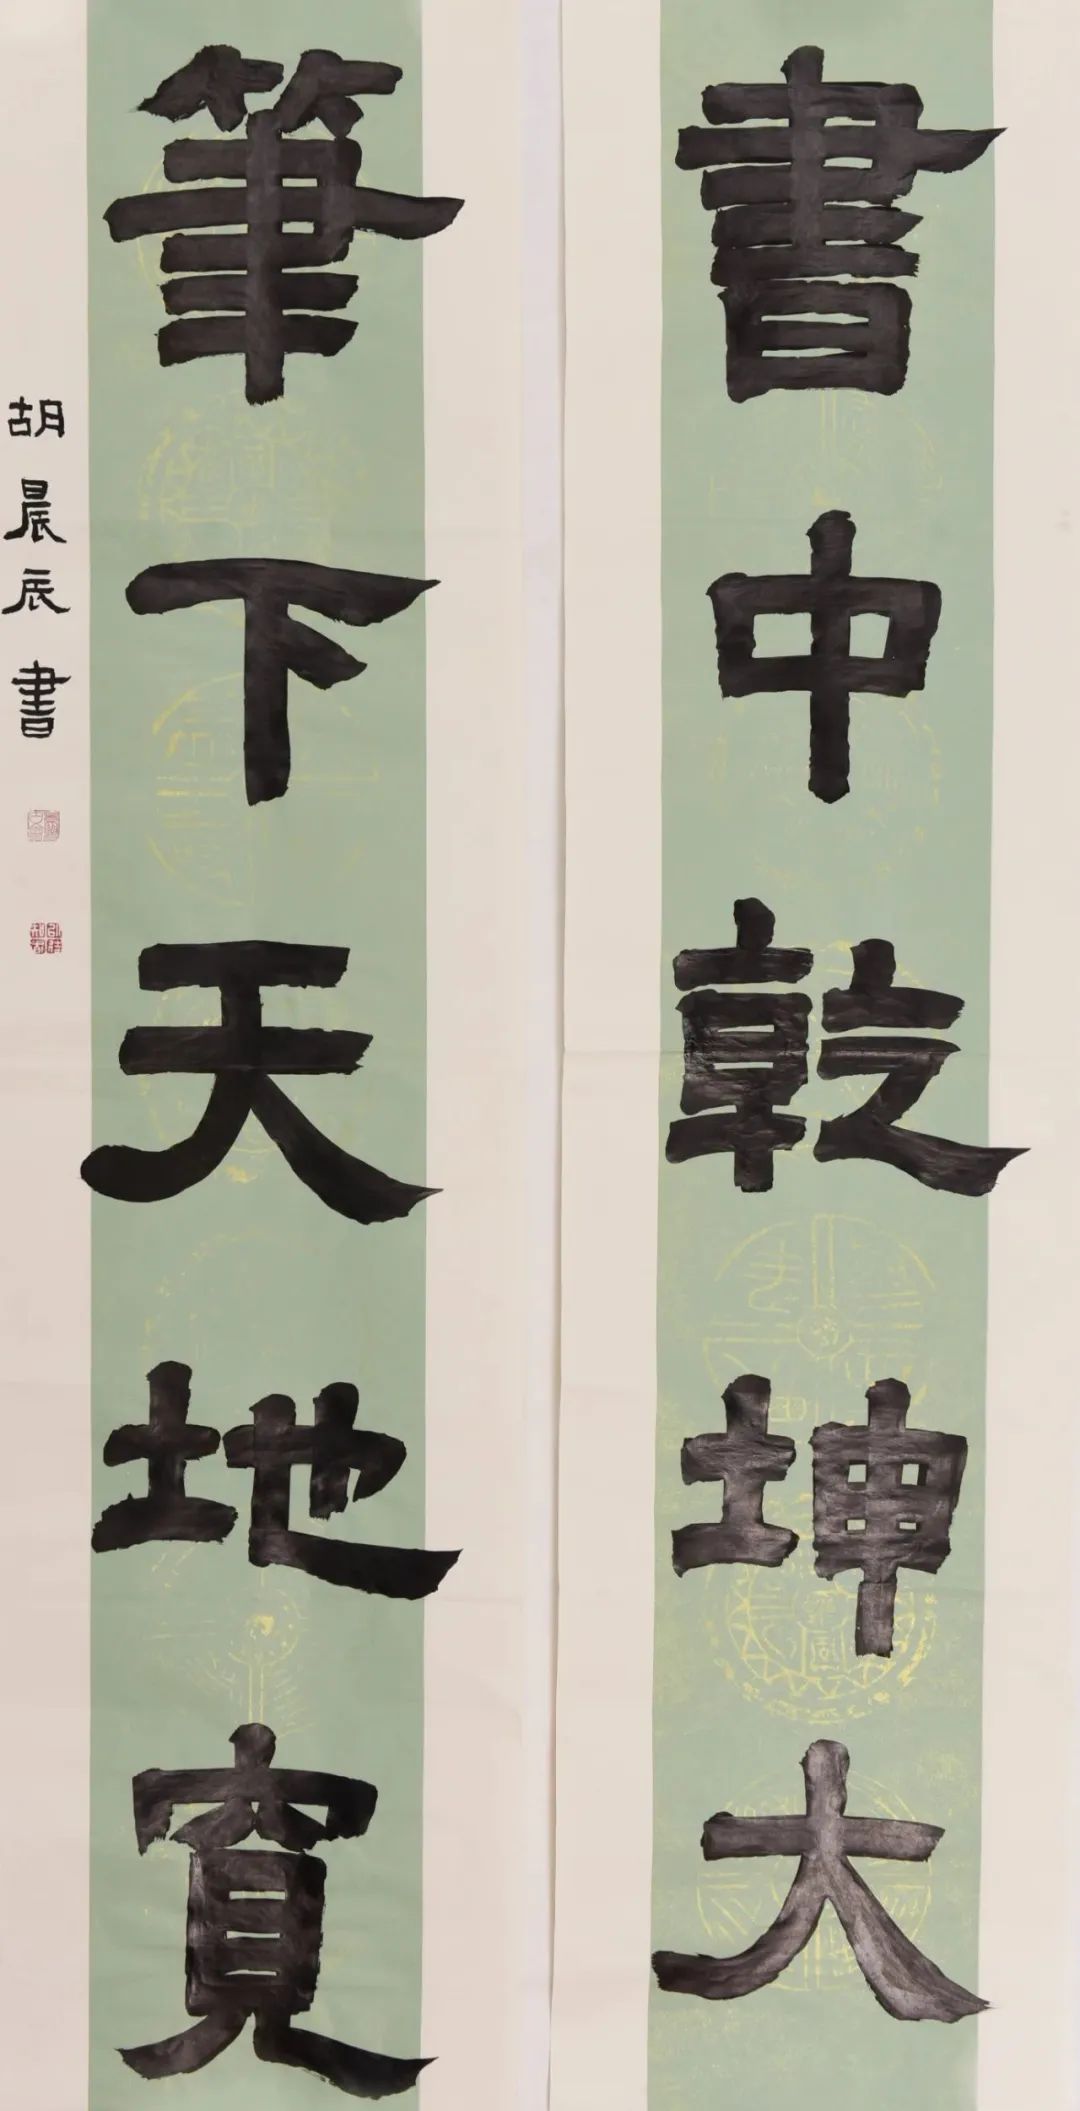 書中乾坤大
筆下天地寬
胡晨辰書